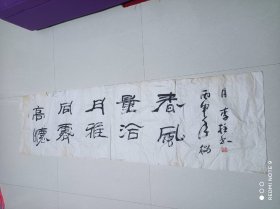 高懷
同霽
月雅
量洽
春風
丙申
月 李
REDMI NOTE 9